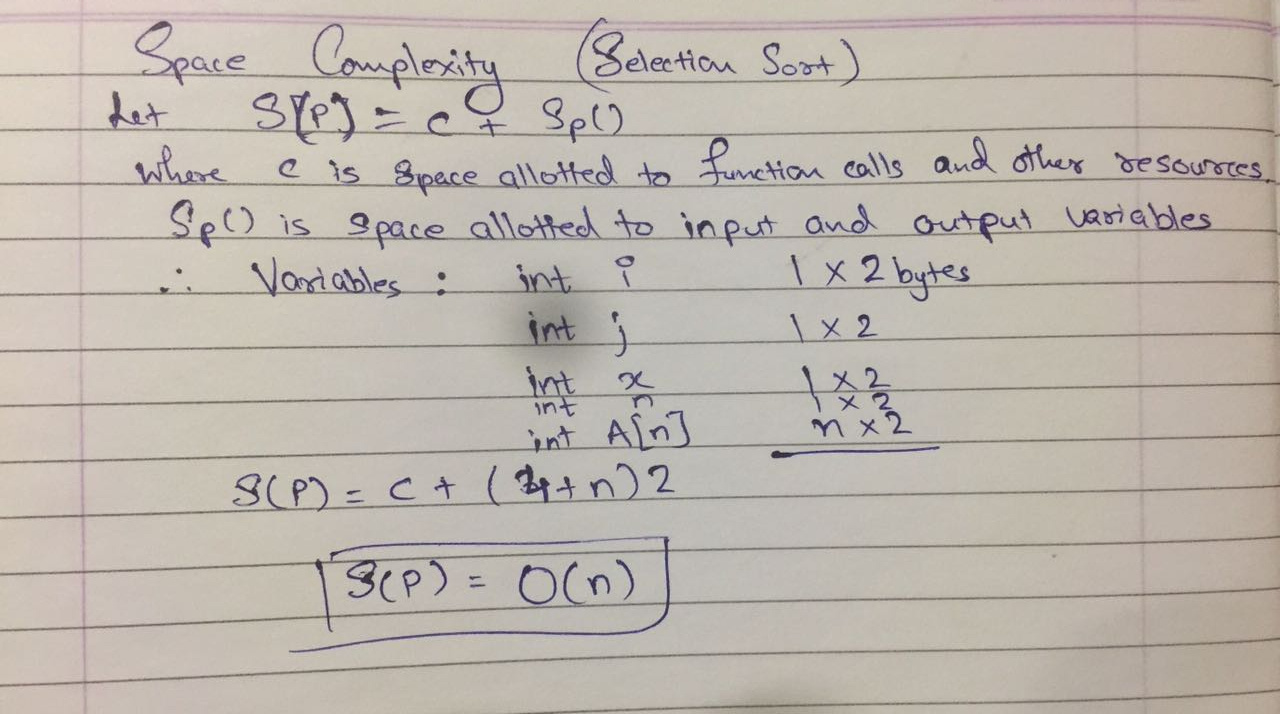 Space Complexity (Selection Sort)
Let S(P) = c + Sp()
where c is space allotted to function calls and other resources.
Sp() is space allotted to input and output variables
∴ Variables : int i 1 × 2 bytes
int j 1 × 2
int x 1 × 2
int n 1 × 2
int A[n] n × 2
S(P) = c + (4 + n) 2
S(P) = O(n)